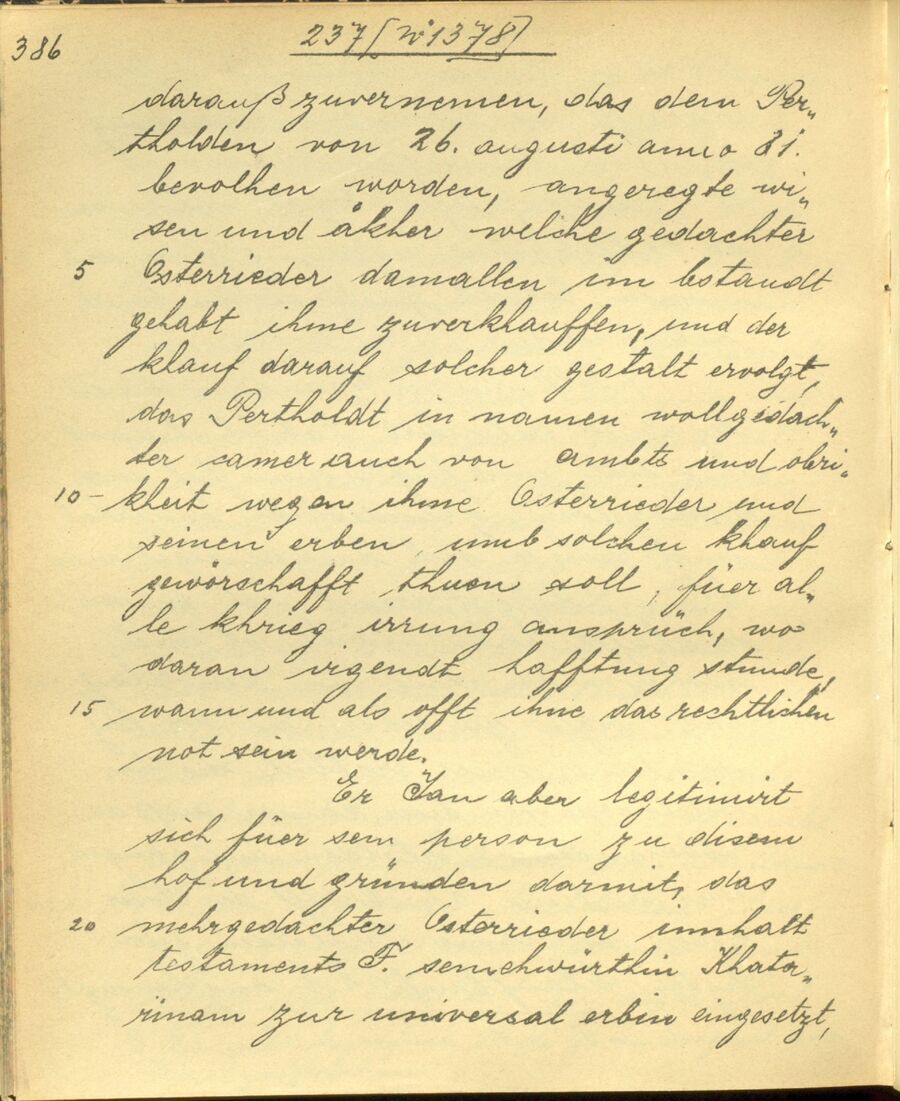 386
237 [N° 1378]
darauß zuvernemen, das dem Per„
tholden von 26. augusti anno 81.
bevolhen worden, angeregte wi„
sen und åkher welche gedachter
5 Osterrieder damallen im bstandt
gehabt ihme zuverkhauffen, und der
klauf darauf solcher gestalt ervolgt,
das Pertholdt in namen wollgedach„
ter camer auch von ambts und obri„
10 – kheit wegen ihme Osterrieder und
seinen erben umb solchen khauf
gewörschafft thuen soll, füer al„
le khrieg irrung ansprüch, wo
daran irgendt hafftung stunde,
15 wann und als offt ihne das rechtlichen
not sein werde.
Er Jan aber legitimirt
sich füer sein person zu disem
hof und gründen darmit, das
20 mehrgedachter Osterrieder innhalt
testaments F. sein ehwürthin Khata„
rinam zur universal erbin eingesetzt,